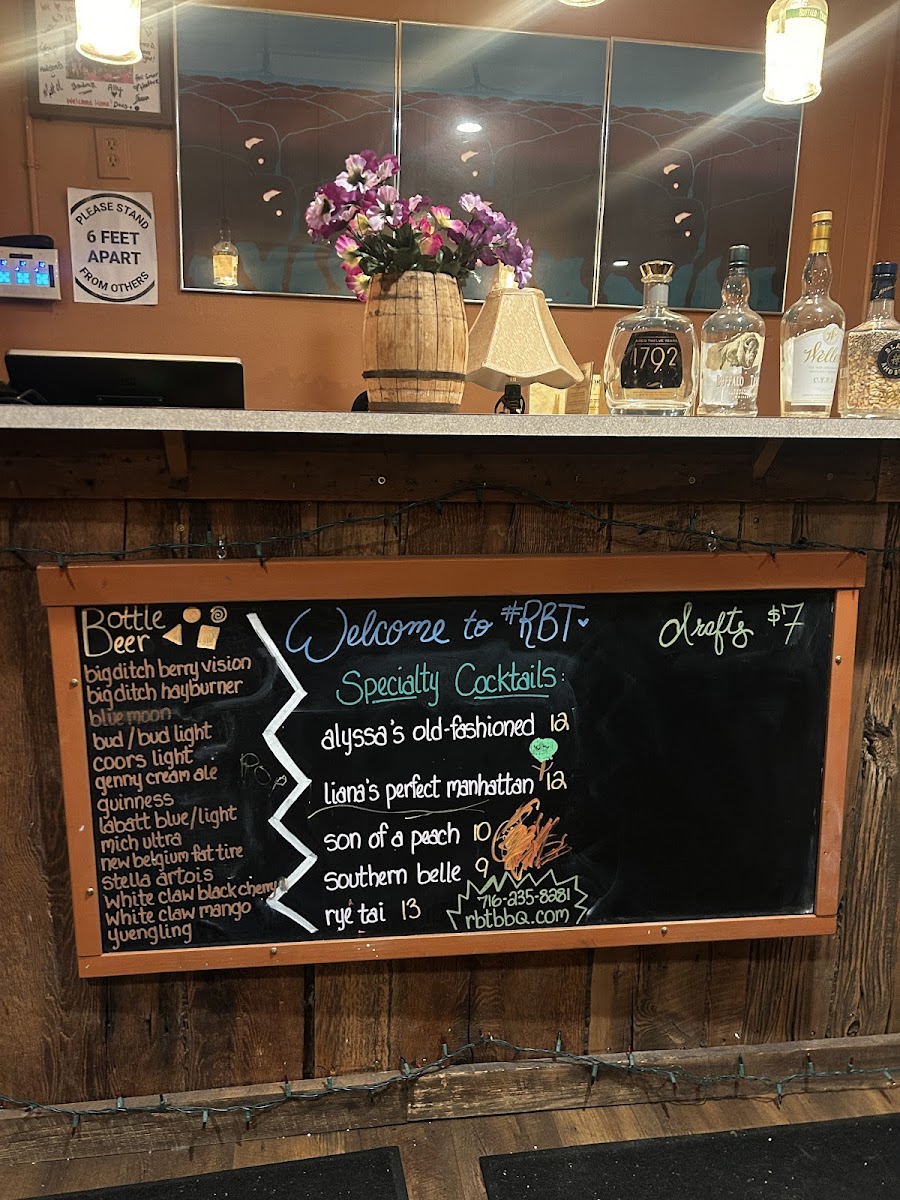 Welcome Home!
PLEASE STAND
6 FEET
APART
FROM OTHERS
1792
BUFFALO
Bottle
Beer
bigditch berry vision
bigditch hayburner
blue moon
bud / bud light
coors light
genny cream ale
guinness
labatt blue/light
mich ultra
new belgium fat tire
stella artois
white claw black cherry
white claw mango
yuengling
POP
Welcome to #RBT
Specialty Cocktails:
alyssa's old-fashioned 12
liana's perfect manhattan 12
son of a peach 10
southern belle 9
rye tai 13
716-235-8281
rbtbbq.com
drafts $7